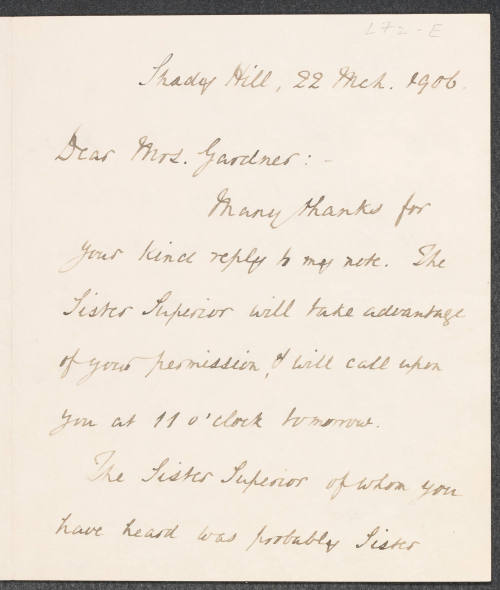 L72-E
Shady Hill, 22 Mch. 1906.
Dear Mrs. Gardner: -
Many thanks for
your kind reply to my note. The
Sister Superior will take advantage
of your permission, & will call upon
you at 11 o'clock tomorrow.
The Sister Superior of whom you
have heard was probably Sister